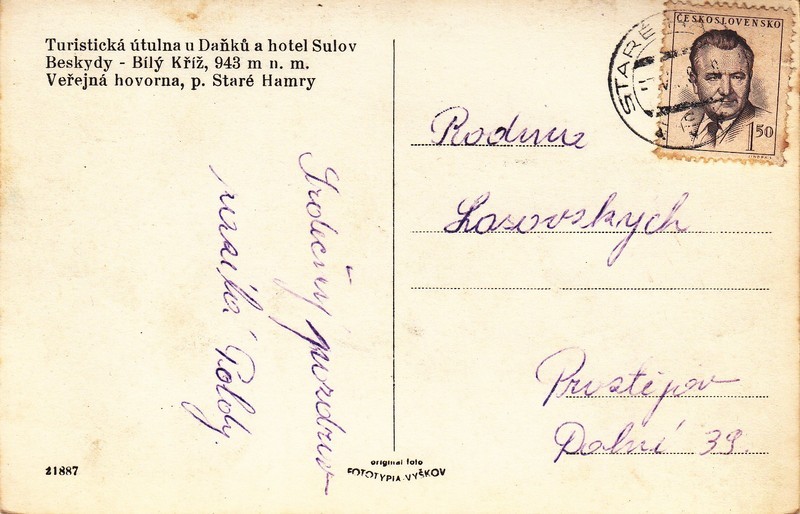 Turistická útulna u Daňků a hotel Sulov
Beskydy - Bílý Kříž, 943 m n. m.
Veřejná hovorna, p. Staré Hamry
ČESKOSLOVENSKO
1 50
STARÉ
Rodina
Lasovských
Prostějov
Dolní 39.
Srdečný pozdrav
Poldy.
21887
original foto
FOTOTYPIA-VYŠKOV